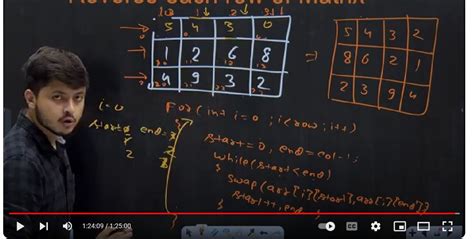 Reverse each row of Matrix
5 4 3 0
1 2 6 8
4 9 3 2
5 4 3 2
8 6 2 1
2 3 9 4
i=0
start end=3
2
For(int i=0; i<row; i++)
{
start=0, end=col-1;
while(start<end)
{
swap(arr[i][start], arr[i][end])
start++, end
}
}
1:24:09 / 1:25:00